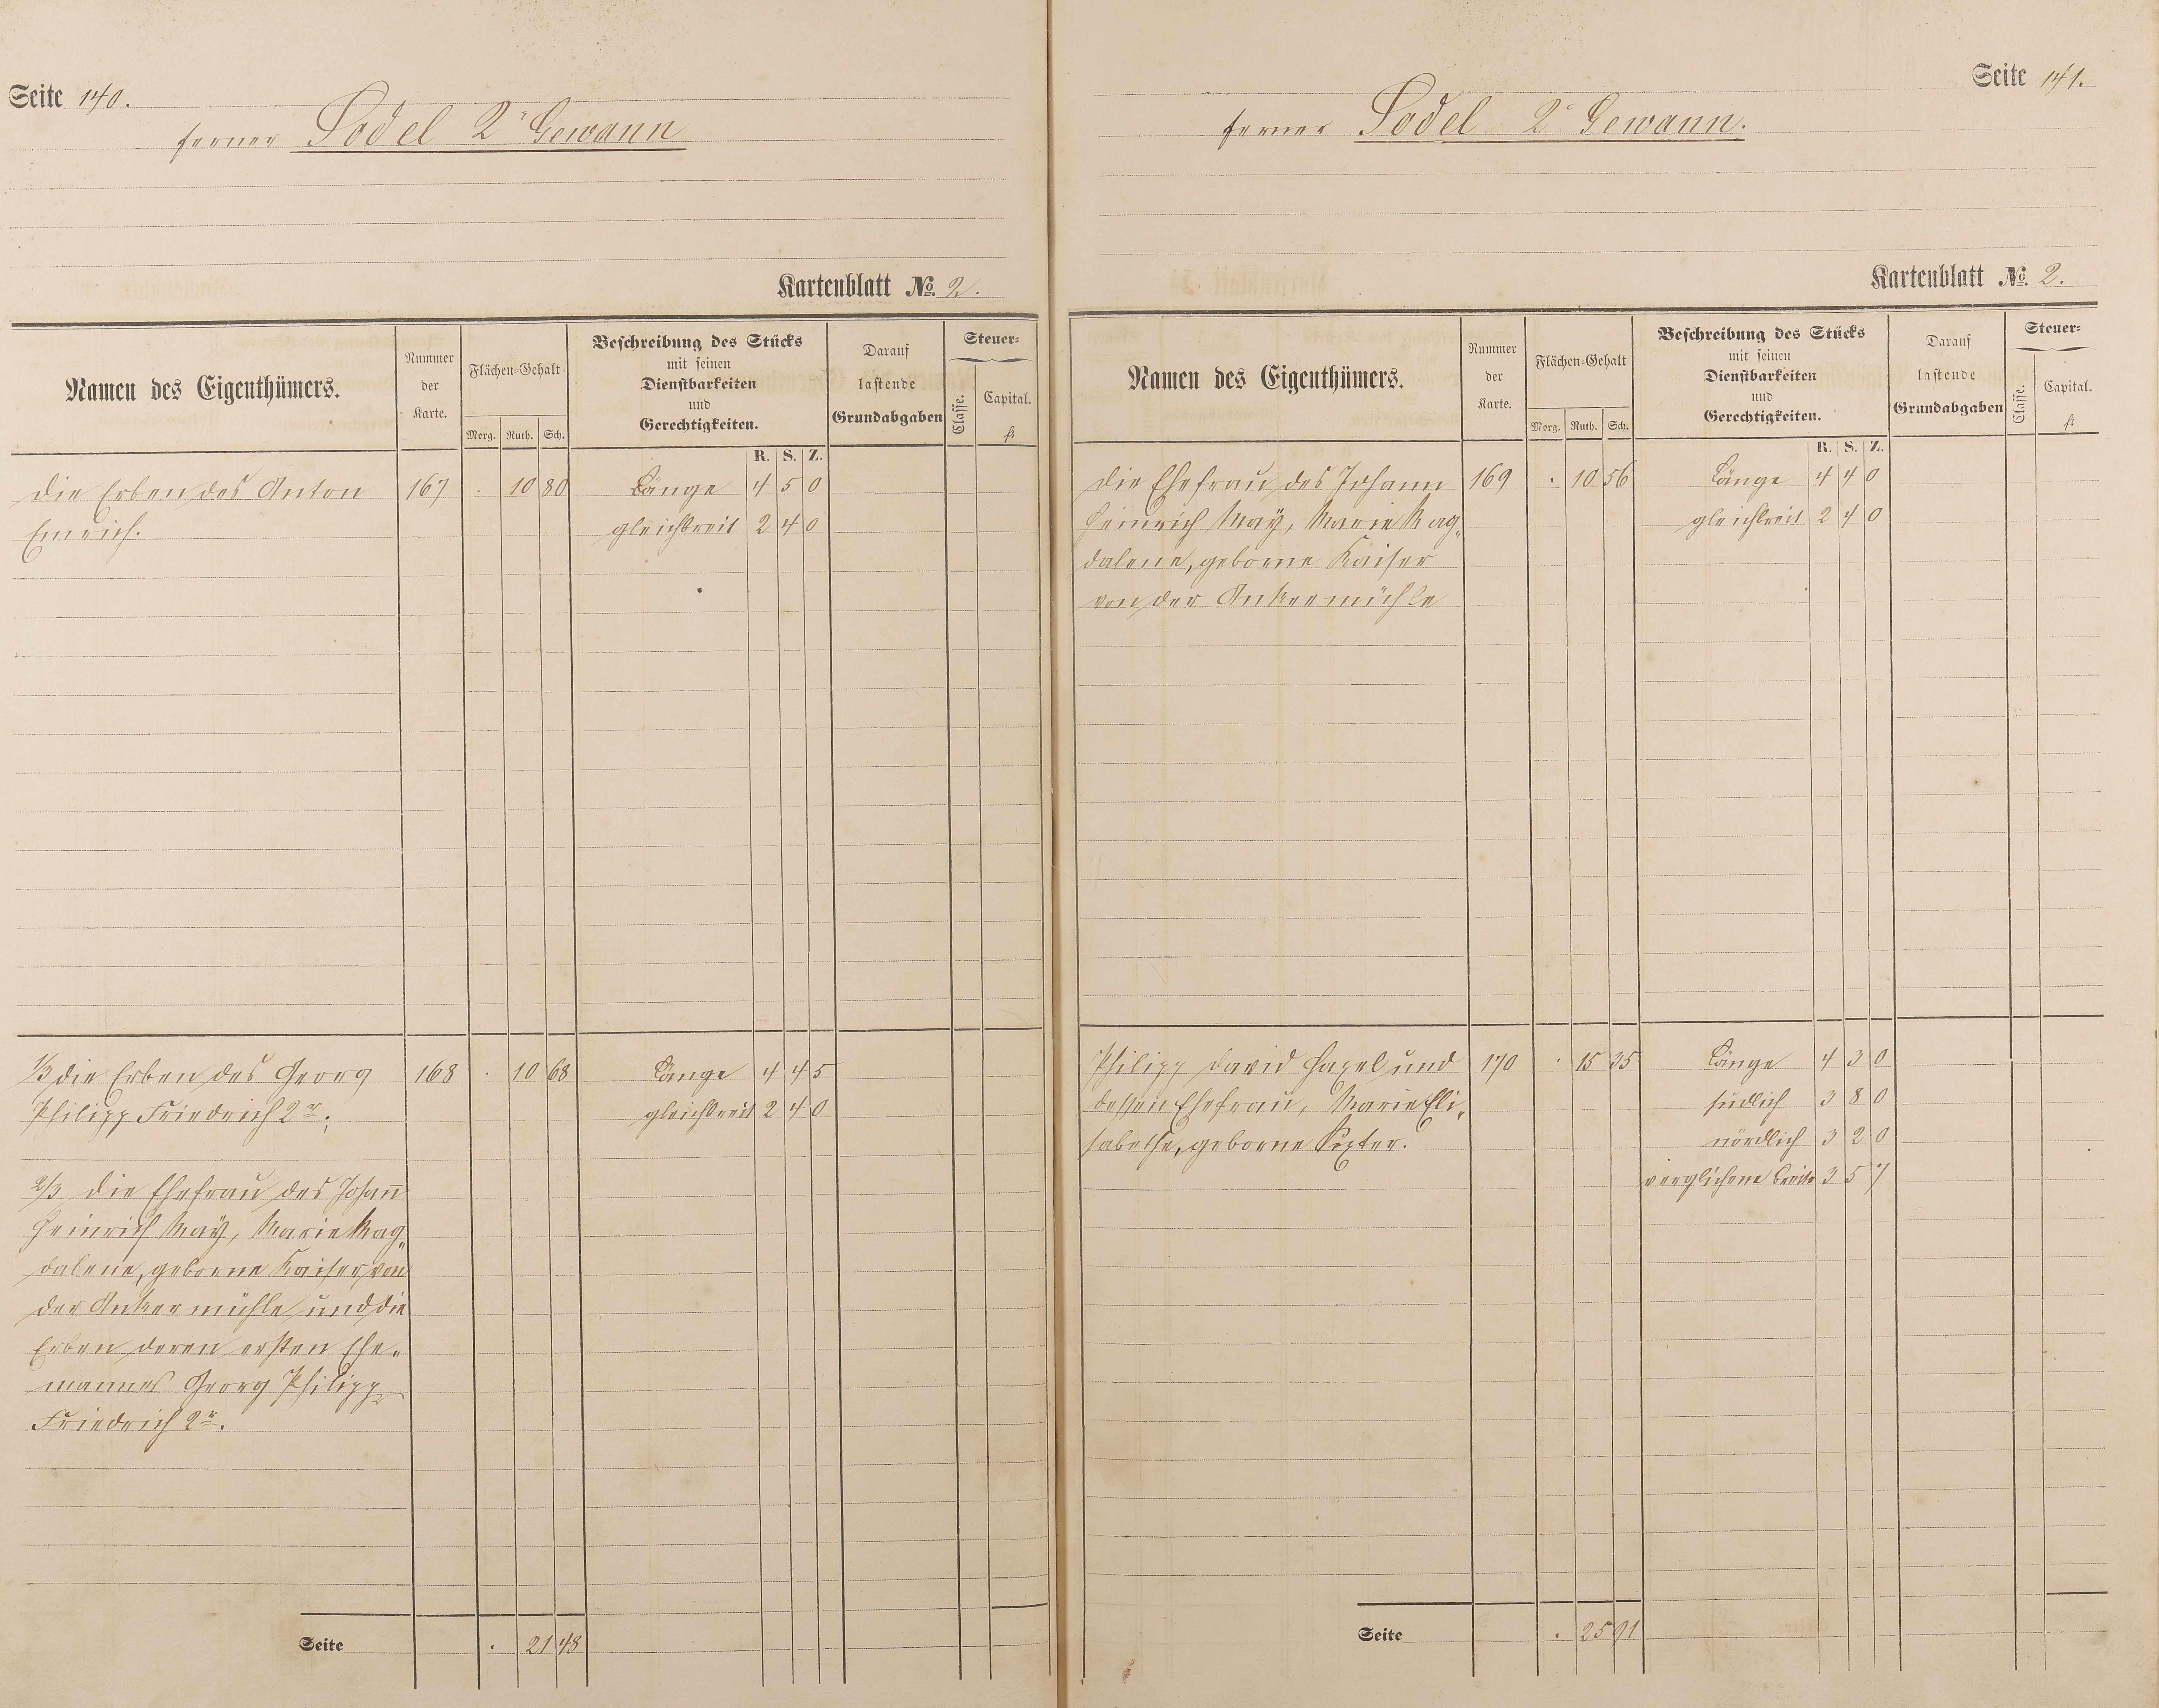 Seite 140.
ferner Sodel 2r Gewann
Kartenblatt No. 2.
Namen des Eigenthümers. Nummer der Karte. Flächen-Gehalt Morg. Ruth. Sch. Beschreibung des Stücks mit seinen Dienstbarkeiten und Gerechtigkeiten. Darauf lastende Grundabgaben Steuer- Classe. Capital. fl.
R. S. Z.
die Erben des Anton 167 . 10 80 Länge 4 5 0
Emrich. gleichbreit 2 4 0
1/3 die Erben des Georg 168 . 10 68 Länge 4 4 5
Philipp Friedrich 2r. gleichbreit 2 4 0
2/3 die Ehefrau des Johann
Heinrich Maÿ, Marie Mag„
dalene, geborne Kaiser, von
der Ankermühle und die
Erben deren ersten Ehe„
mannes Georg Philipp
Friedrich 2r.
Seite . 21 48
Seite 141.
ferner Sodel 2r Gewann.
Kartenblatt No. 2.
Namen des Eigenthümers. Nummer der Karte. Flächen-Gehalt Morg. Ruth. Sch. Beschreibung des Stücks mit seinen Dienstbarkeiten und Gerechtigkeiten. Darauf lastende Grundabgaben Steuer- Classe. Capital. fl.
R. S. Z.
die Ehefrau des Johann 169 . 10 56 Länge 4 4 0
Heinrich Maÿ, Marie Mag„ gleichbreit 2 4 0
dalene, geborne Kaiser
von der Ankermühle
Philipp David Hapel und 170 . 15 35 Länge 4 3 0
dessen Ehefrau, Marie Eli„ südlich 3 8 0
sabethe, geborne nördlich 3 2 0
verglichene Breite 3 5 7
Seite . 25 91